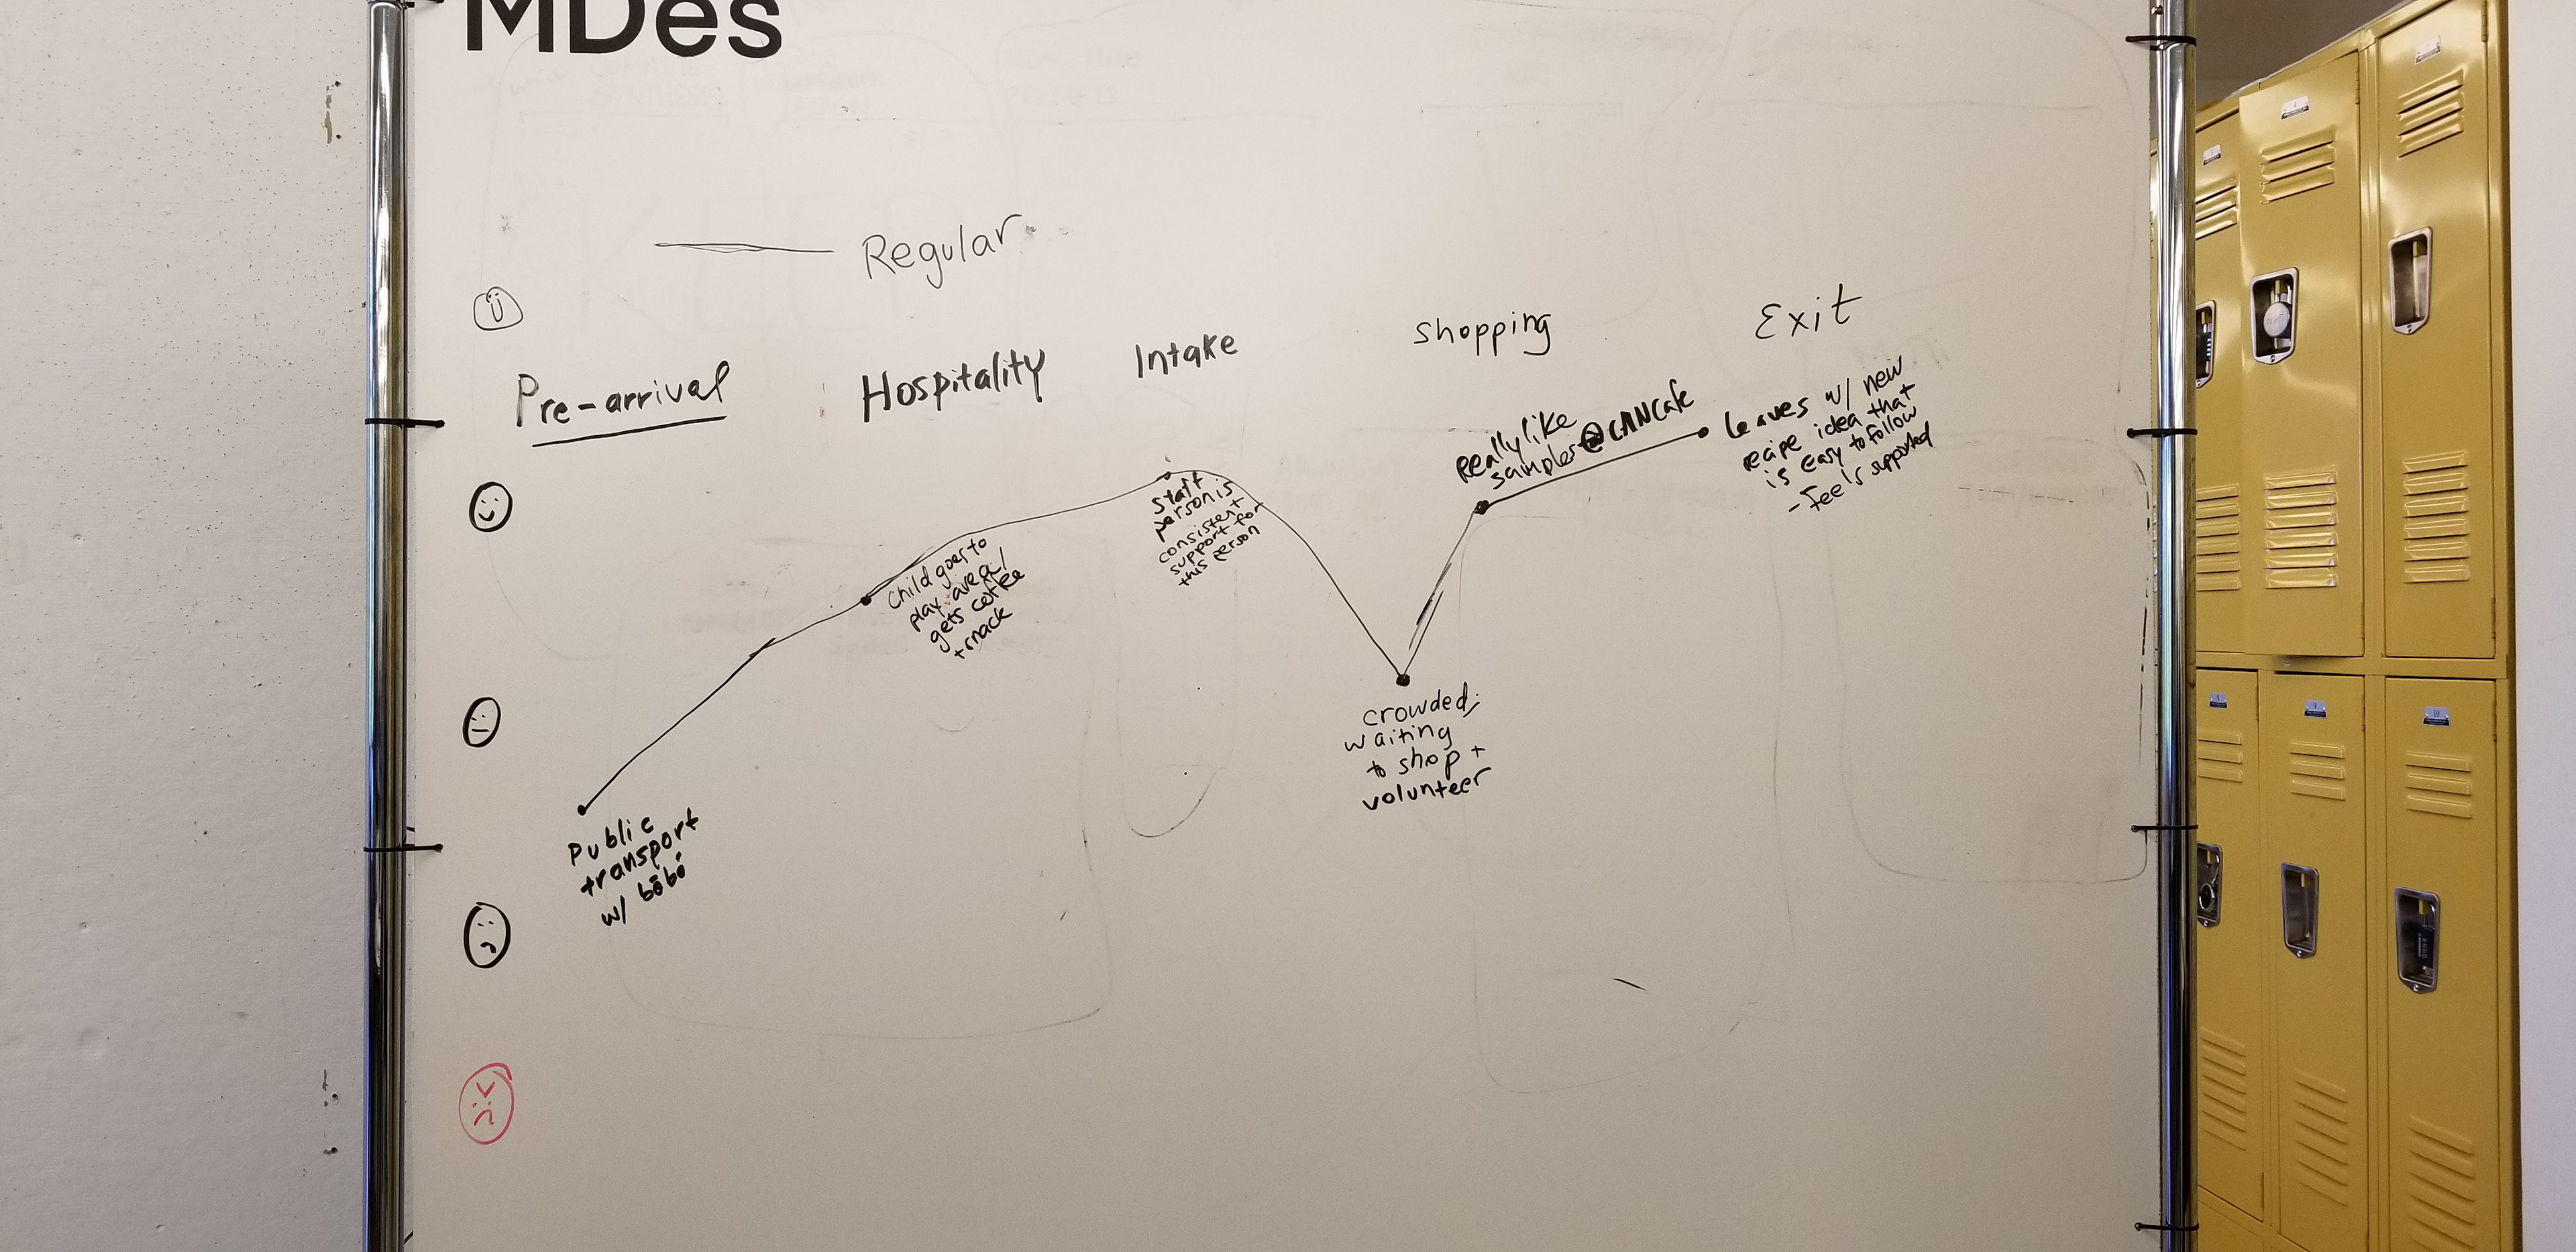 MDes
Regular
Pre-arrival
Hospitality
Intake
shopping
Exit
Public
transport
w/ bébé
Child goes to
play area/
gets coffee
+ snack
Staff
person is
consistent
support for
this person
crowded;
waiting
to shop +
volunteer
Really like
samples @ CAN Cafe
Leaves w/ new
recipe idea that
is easy to follow
- Feels supported